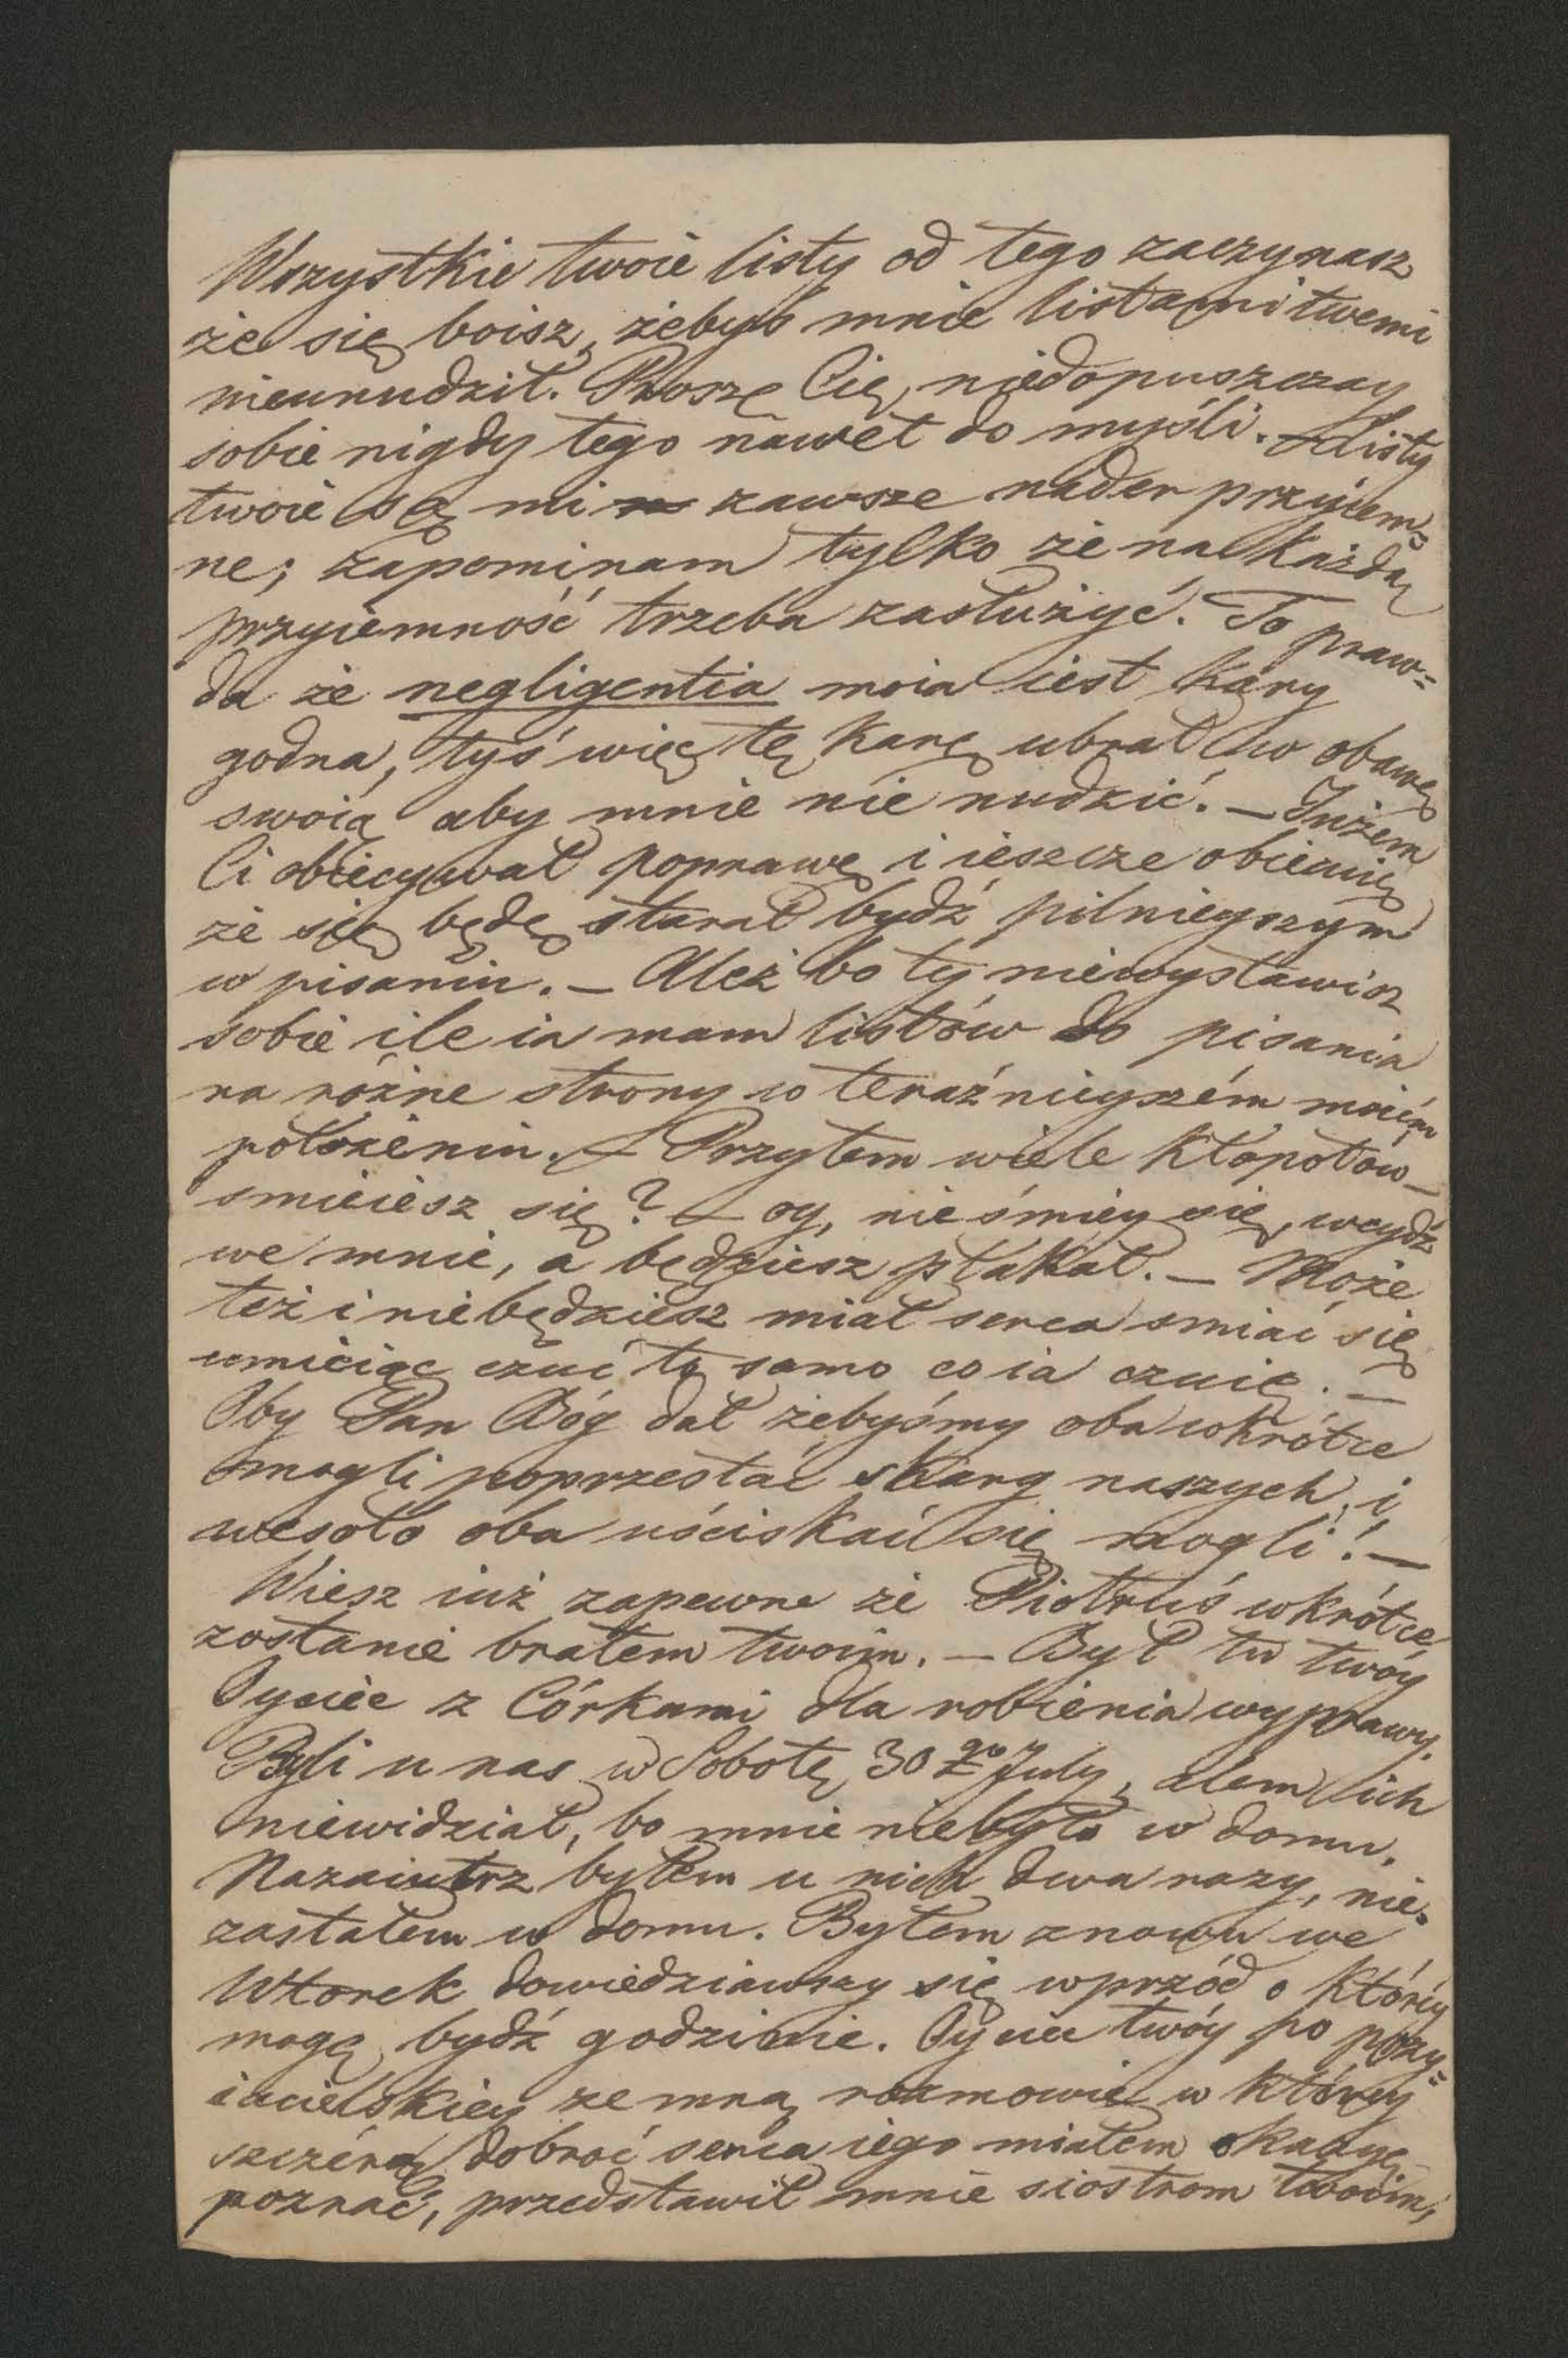 Wszystkie twoie listy od tego zaczynasz
że się boisz, żebyś mnie listami twemi
nieunudził. Proszę Cię, niedopuszczay
sobie nigdy tego nawet do myśli. – Listy
twoie są mi zawsze nader przyiem=
ne; zapominam tylko że na każdą
przyiemność trzeba zasłużyć. To praw=
da że negligentia moia iest kary
godna, tyś więc tę karę ubrał w obawę
swoią aby mnie nie nudzić. – Jużem
Ci obiecywał poprawę i ieszcze obiecuię
że się będę starał bydź pilnieyszym
w pisaniu. – Ależ bo ty niewystawisz
sobie ile ia mam listów do pisania
na różne strony w teraźnieyszém moiém
położeniu. – Przytem wiele kłopotów –
smieiesz się? – oy, nie śmiey się, weydź
we mnie, a będziesz płakał. – Może
też i niebędziesz miał serca smiać się
umieiąc czuć to samo co ia czuię. –
Oby Pan Bóg dał żebyśmy oba wkrótce
mogli poprzestać skarg naszych, i
wesoło oba uściskać się mogli! –
Wiesz iuż zapewne że Piotruś wkrótce
zostanie bratem twoim. – Był tu twóy
Oyciec z Córkami dla robienia wyprawy.
Byli u nas w Sobotę 30go July, alem ich
niewidział, bo mnie niebyło w domu.
Nazaiutrz byłem u nich dwa razy, nie=
zastałem w domu. Byłem znowu we
Wtorek dowiedziawszy się wprzód o któréy
mogę bydź godzinie. Oyciec twóy po przy=
iacielskiey ze mną rozmowie w któréy
szczérą dobroć serca iego miałem okazyę
poznać, przedstawił mnie siostrom twoim,